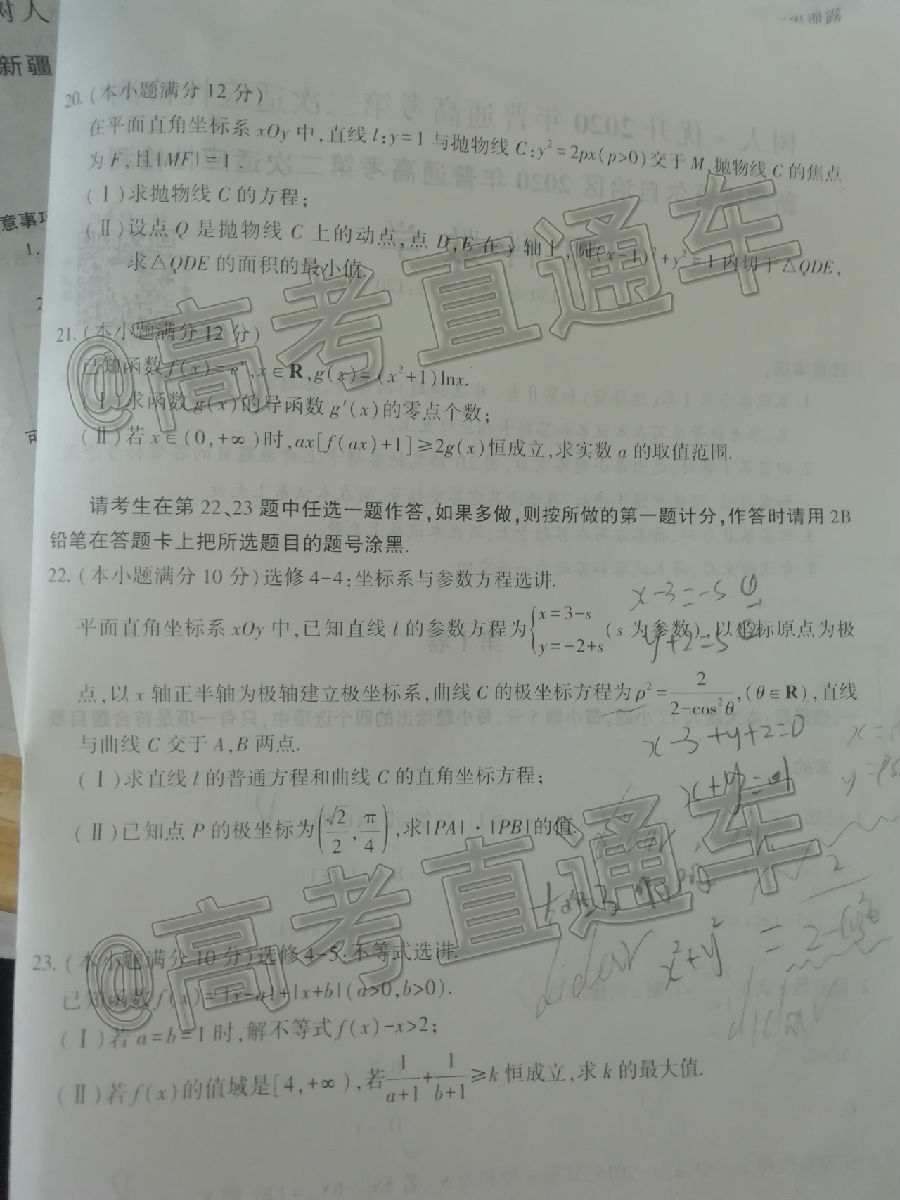 树人
新疆
意事项
1.
20.(本小题满分12分)
在平面直角坐标系xOy中,直线l:y=1与抛物线C:y²=2px(p>0)交于M,抛物线C的焦点
为F,且|MF|=1
(Ⅰ)求抛物线C的方程;
(Ⅱ)设点Q是抛物线C上的动点,点D,E在y轴上,圆(x-1)²+y²=1内切于△QDE,
求△QDE的面积的最小值.
21.(本小题满分12分)
已知函数f(x)=eˣ,x∈R,g(x)=(x²+1)lnx.
(Ⅰ)求函数g(x)的导函数g′(x)的零点个数;
(Ⅱ)若x∈(0,+∞)时,ax[f(ax)+1]≥2g(x)恒成立,求实数a的取值范围.
请考生在第22、23题中任选一题作答,如果多做,则按所做的第一题计分,作答时请用2B
铅笔在答题卡上把所选题目的题号涂黑.
22.(本小题满分10分)选修4-4:坐标系与参数方程选讲.
x-3=-s ①
平面直角坐标系xOy中,已知直线l的参数方程为{x=3-s y=-2+s (s为参数),以坐标原点为极
y+2=s ②
点,以x轴正半轴为极轴建立极坐标系,曲线C的极坐标方程为ρ²=2/(2-cos²θ),(θ∈R),直线l
与曲线C交于A,B两点.
x-3+y+2=0
(Ⅰ)求直线l的普通方程和曲线C的直角坐标方程;
x+y=1
(Ⅱ)已知点P的极坐标为(√2/2,π/4),求|PA|·|PB|的值.
x²+y²=2/(2-cos²θ)
23.(本小题满分10分)选修4-5:不等式选讲.
已知函数f(x)=|x-a|+|x+b|(a>0,b>0).
(Ⅰ)若a=b=1时,解不等式f(x)-x>2;
(Ⅱ)若f(x)的值域是[4,+∞),若1/(a+1)+1/(b+1)≥k恒成立,求k的最大值.
@高考直通车
@高考直通车